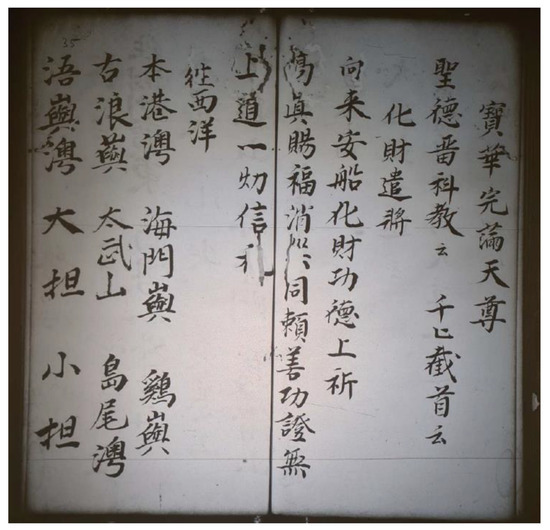 35
寶華完滿天尊
聖德科教云 千截首云
化財遣將
向来安船化財功德上祈
高眞賜福消災同賴善功證無
上道一切信礼
往西洋
本港澳 海門嶼 鷄嶼
古浪嶼 太武山 島尾澳
浯嶼澳 大担 小担